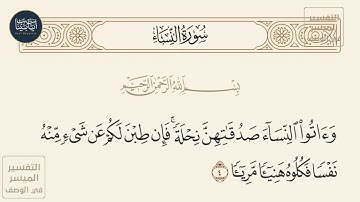 سُورَةُ النِّسَاءِ
بِسْمِ اللَّهِ الرَّحْمَٰنِ الرَّحِيمِ
وَءَاتُوا۟ ٱلنِّسَآءَ صَدُقَٰتِهِنَّ نِحْلَةًۭ ۚ فَإِن طِبْنَ لَكُمْ عَن شَىْءٍۢ مِّنْهُ
نَفْسًۭا فَكُلُوهُ هَنِيٓـًۭٔا مَّرِيٓـًۭٔا ٤
التفسير
الميسر
في الوصف